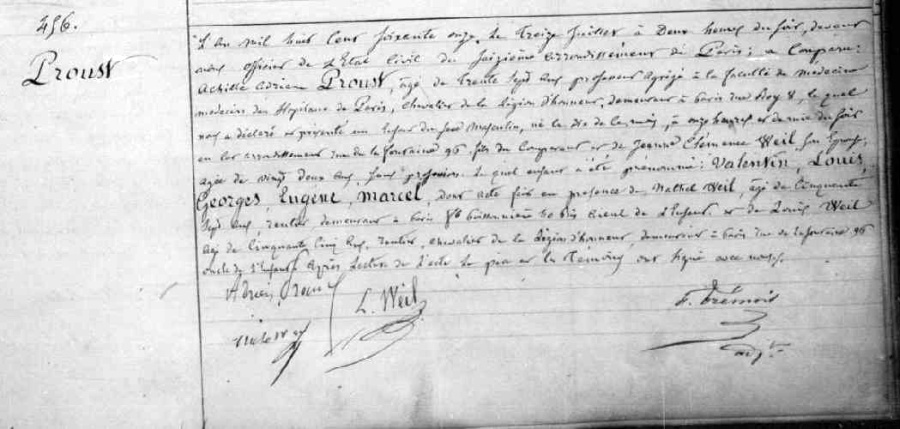 456.
Proust
L'an mil huit cent soixante onze le treize Juillet à Deux heures du soir, devant
nous officier de l'Etat Civil du seizième arrondissement de Paris; a comparu:
Achille Adrien Proust, agé de trente sept ans professeur agrégé à la faculté de médecine
médecin des Hopitaux de Paris, Chevalier de la Légion d'honneur, demeurant à Paris rue Roy 8, lequel
nous a déclaré et présenté un enfant du sexe Masculin, né le dix de ce mois, à onze heures et demie du soir
en cet arrondissement rue de la fontaine 96 fils du comparant et de Jeanne Clémence Weil son épouse,
agée de vingt deux ans, sans profession. lequel enfant a été prénommé: Valentin, Louis,
Georges, Eugène, Marcel, dont acte fait en présence de Nathé Weil, agé de Cinquante
sept ans, rentier, demeurant à Paris fg poissonnière 40 bis aïeul de l'Enfant, et de Louis Weil
agé de Cinquante Cinq ans, rentier, chevalier de la Légion d'honneur, demeurant à Paris rue de la fontaine 96
oncle de l'Enfant. Après lecture de l'acte le père et les témoins ont signé avec nous.
Adrien Proust
L. Weil
F. Trémois
adjt.